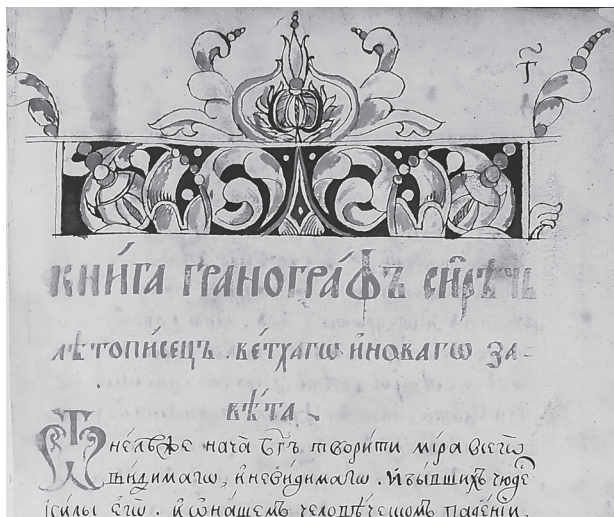 т҃
КНИ́ГА ГРАНОГРА́ФЪ СИ́РѢЧЬ
лѣтопи́сецъ . ветхагѡ и҆новагѡ за-
вѣ́та .
Ѿне́лѣже нача̀ бг҃ъ твори́ти мі́ра всегѡ̀
ви́димагѡ , и҆неви́димагѡ . И҆бы́вшихъ чюде
і҆си́лы є҆гѡ̀ . и҆ѡ҆на́шемъ человѣ́ческомъ паде́нїи .